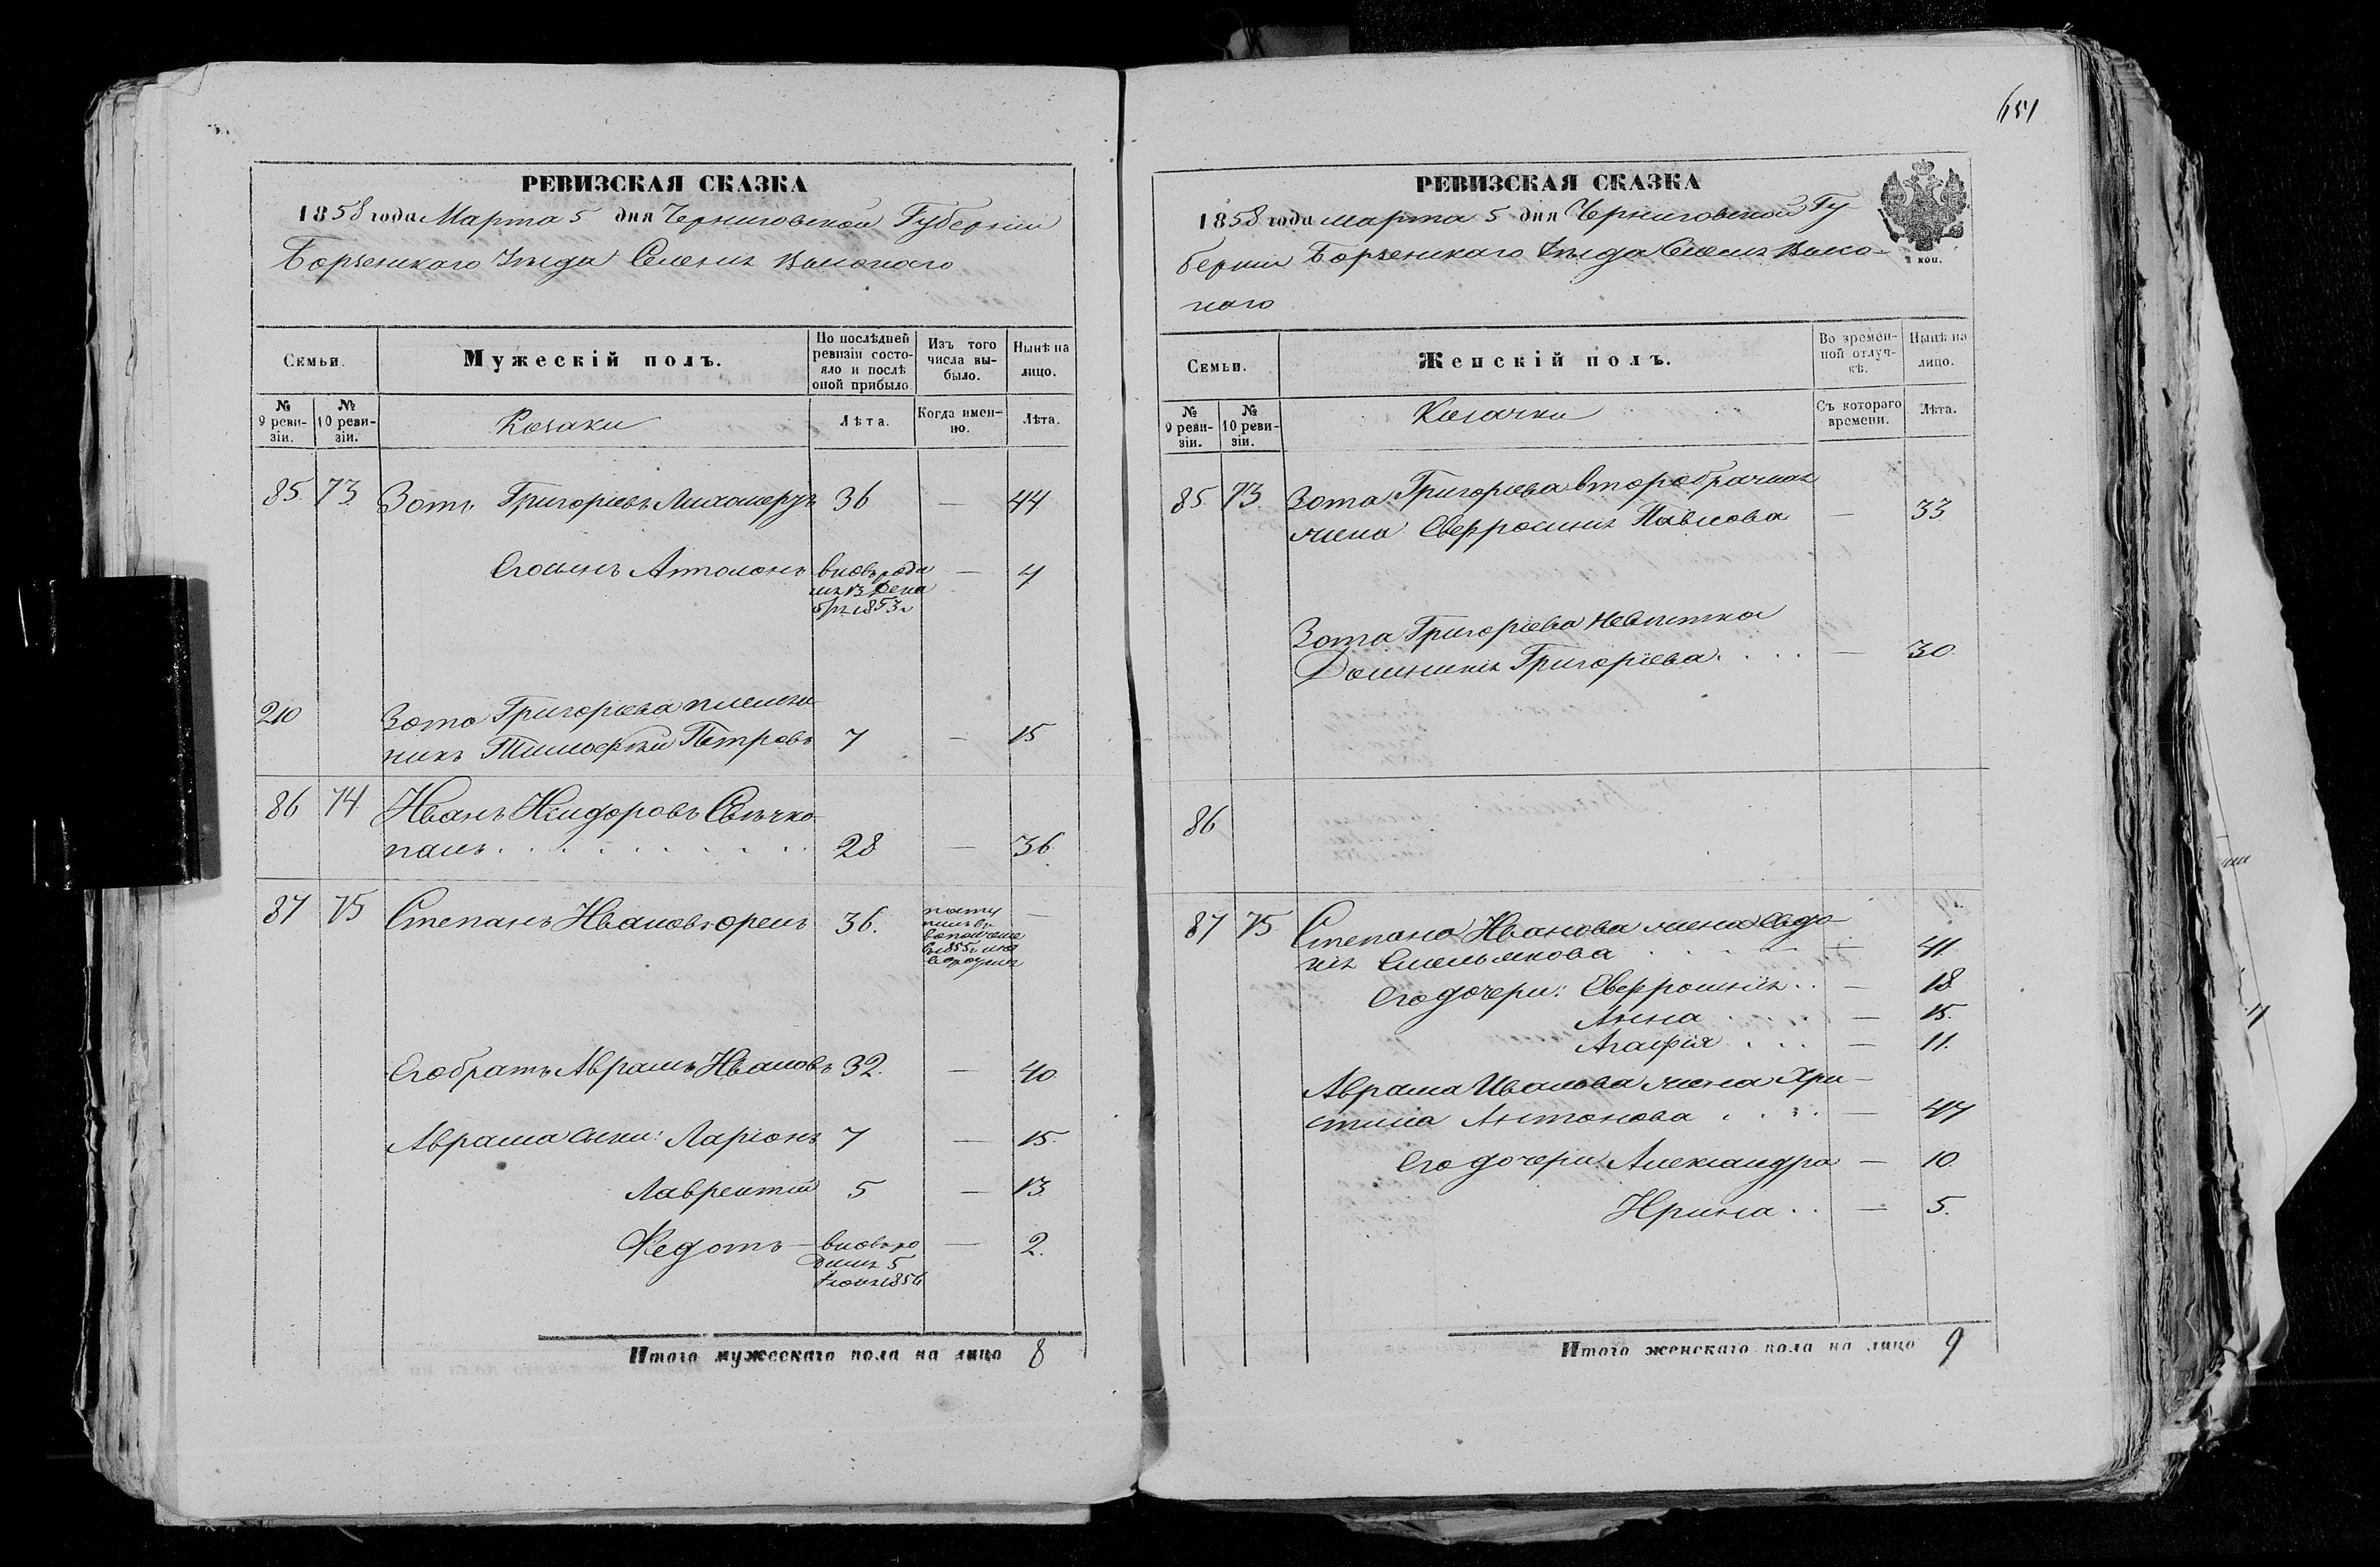 651
РЕВИЗСКАЯ СКАЗКА
1858 года Марта 5 дня Черниговской Губерніи
Борзенскаго Уѣзда Селенія Высокаго
Семьи.
Мужескій полъ.
По послѣдней ревизіи состояло и послѣ оной прибыло
Изъ того числа выбыло.
Нынѣ на лицо.
№ 9 ревизіи.
№ 10 ревизіи.
Козаки
Лѣта.
Когда именно.
Лѣта.
85. 73. Зотъ Григорьевъ Лихошерстъ 36 — 44
Его сынъ Антонъ вновь роди — 4
лся 13 Дека
бря 1853 г.
210 Зота Григорьева племян
никъ Тимофей Петровъ 7 — 15
86 74 Иванъ Исидоровъ Свѣчко
палъ 28 — 36
87 75 Степанъ Ивановъ Орелъ 36. —
въ 1855 г.
Его братъ Аврамъ Ивановъ 32. — 40
Аврама сыны: Ларіонъ 7 — 15.
Лаврентій 5 — 13
Федотъ — вновь ро — 2.
дился 5
1856
Итого мужескаго пола на лицо 8
РЕВИЗСКАЯ СКАЗКА
1858 года марта 5 дня Черниговской Гу
берніи Борзенскаго Уѣзда Селенія Высо-
каго
коп.
Семьи.
Женскій полъ.
Во временной отлучкѣ.
Нынѣ на лицо.
№ 9 ревизіи.
№ 10 ревизіи.
Козачки
Съ котораго времени.
Лѣта.
85. 73. Зота Григорьева второбрачная
жена Евфросинія Павлова — 33.
Зота Григорьева невѣстка
Домникія Григорьева — 30.
86
87 75 Степана Иванова жена Евдо-
кія Емельянова — 41.
Его дочери: Евфросинія — 18.
Анна — 15.
Агафія — 11.
Аврама Иванова жена Хри-
стина Антонова — 47
Его дочери Александра — 10.
Ирина — 5.
Итого женскаго пола на лицо 9